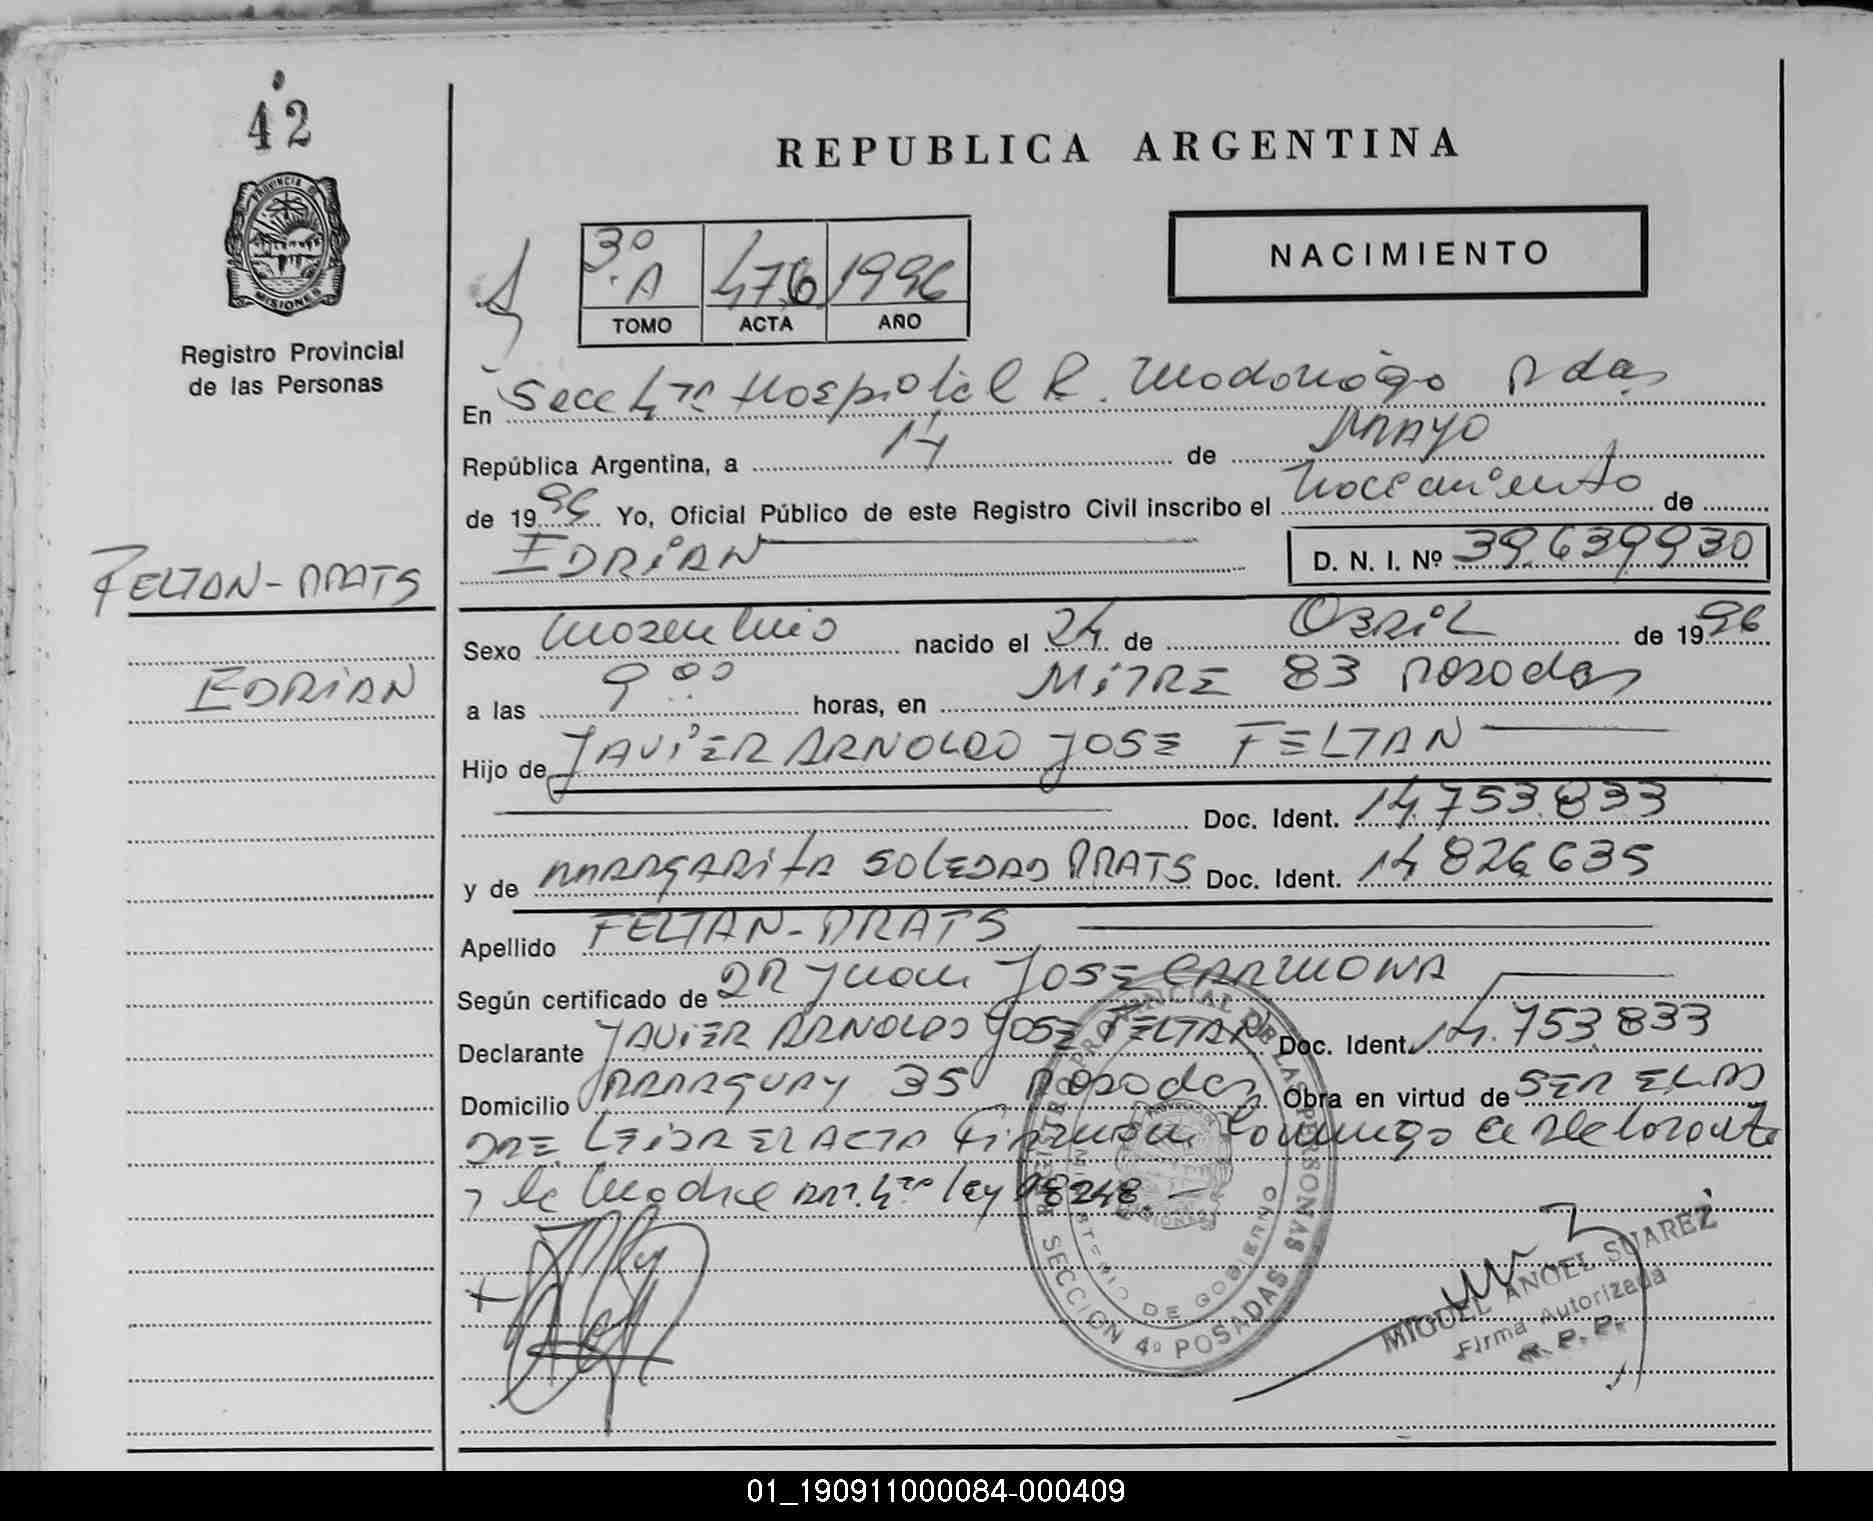 42
PROVINCIA DE
MISIONES
Registro Provincial
de las Personas
REPUBLICA ARGENTINA
NACIMIENTO
3º A 476 1996
TOMO ACTA AÑO
En Secc 4ta Hospital R. Madariaga Pdas
República Argentina, a 14 de MAYO
de 1996 Yo, Oficial Público de este Registro Civil inscribo el nacimiento de
EDRIAN D. N. I. Nº 39.639930
FELTAN-PRATS
EDRIAN
Sexo masculino nacido el 24 de ABRIL de 1996
a las 9 00 horas, en MITRE 83 Posadas
Hijo de JAVIER ARNOLDO JOSE FELTAN
Doc. Ident. 14.753.833
y de MARGARITA SOLEDAD PRATS Doc. Ident. 14 826.635
Apellido FELTAN-PRATS
Según certificado de DR Juan JOSE CARMONA
Declarante JAVIER ARNOLDO JOSE FELTAN Doc. Ident. 14.753.833
Domicilio PARAGUAY 35 Posadas Obra en virtud de SER EL PA
DRE. LEIDA EL ACTA FIRMAN conmigo el declarante
y la madre Art. 4to ley 18248.-
REGISTRO PROVINCIAL DE LAS PERSONAS
MINISTERIO DE GOBIERNO
SECCION 4º POSADAS
MIGUEL ANGEL SUAREZ
Firma Autorizada
R. P. P.
01_190911000084-000409